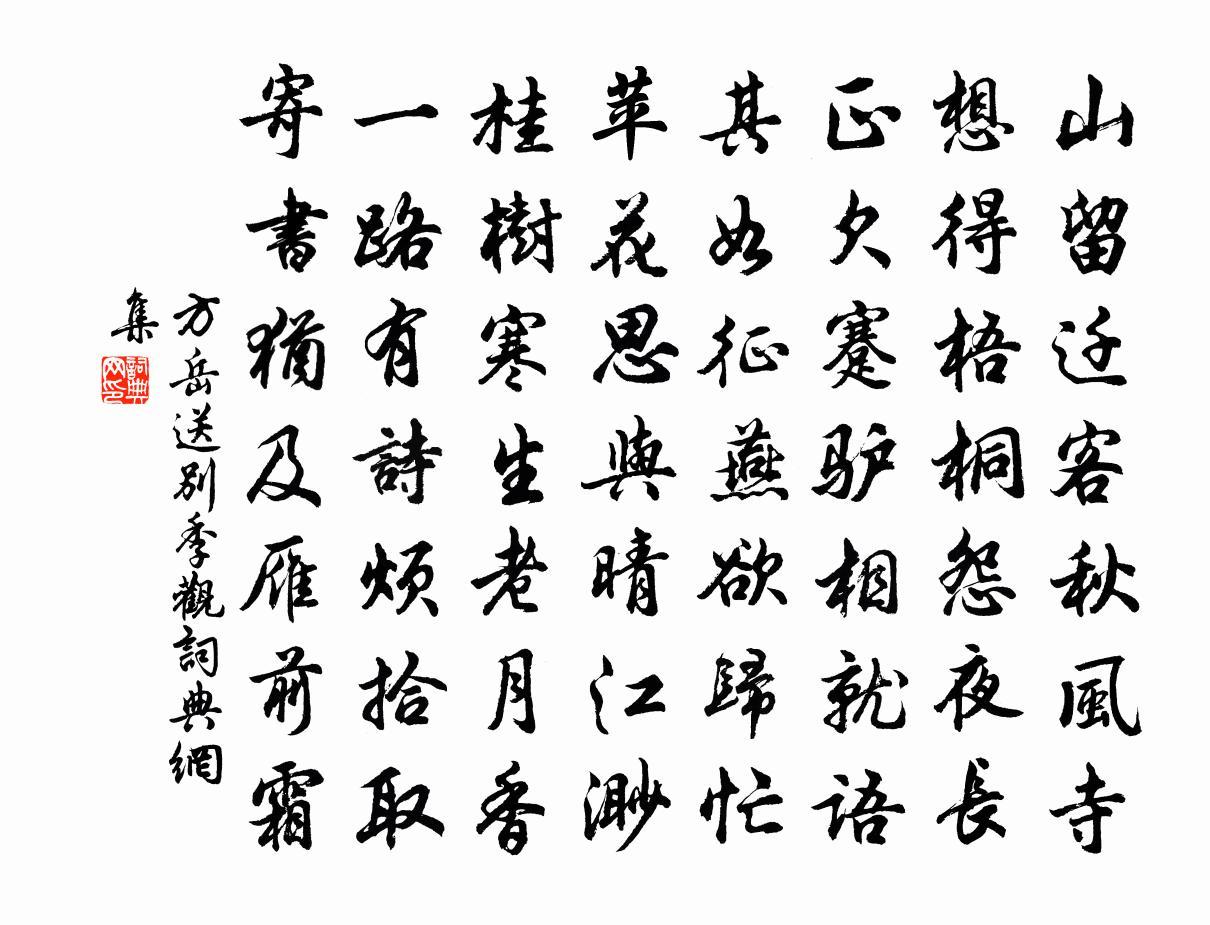 山留迂客秋風寺
想得梧桐怨夜長
正欠蹇驴相就语
其如征燕欲歸忙
苹花思與晴江渺
桂樹寒生老月香
一路有詩烦拾取
寄書猶及雁前霜
方岳送别季觀詞典網
集
詞典
网印